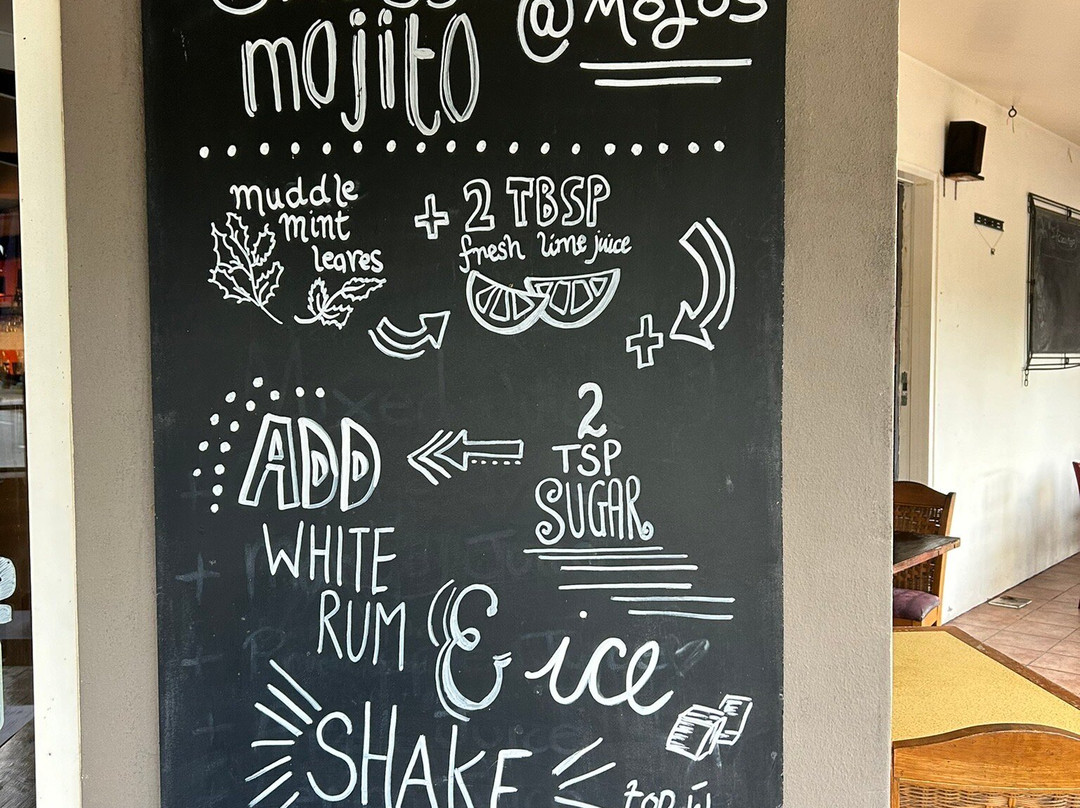 mojito
@ MOJOS
muddle
mint
leaves
+ 2 TBSP
fresh lime juice
+
2
TSP
SUGAR
ADD
WHITE
RUM
& ice
SHAKE